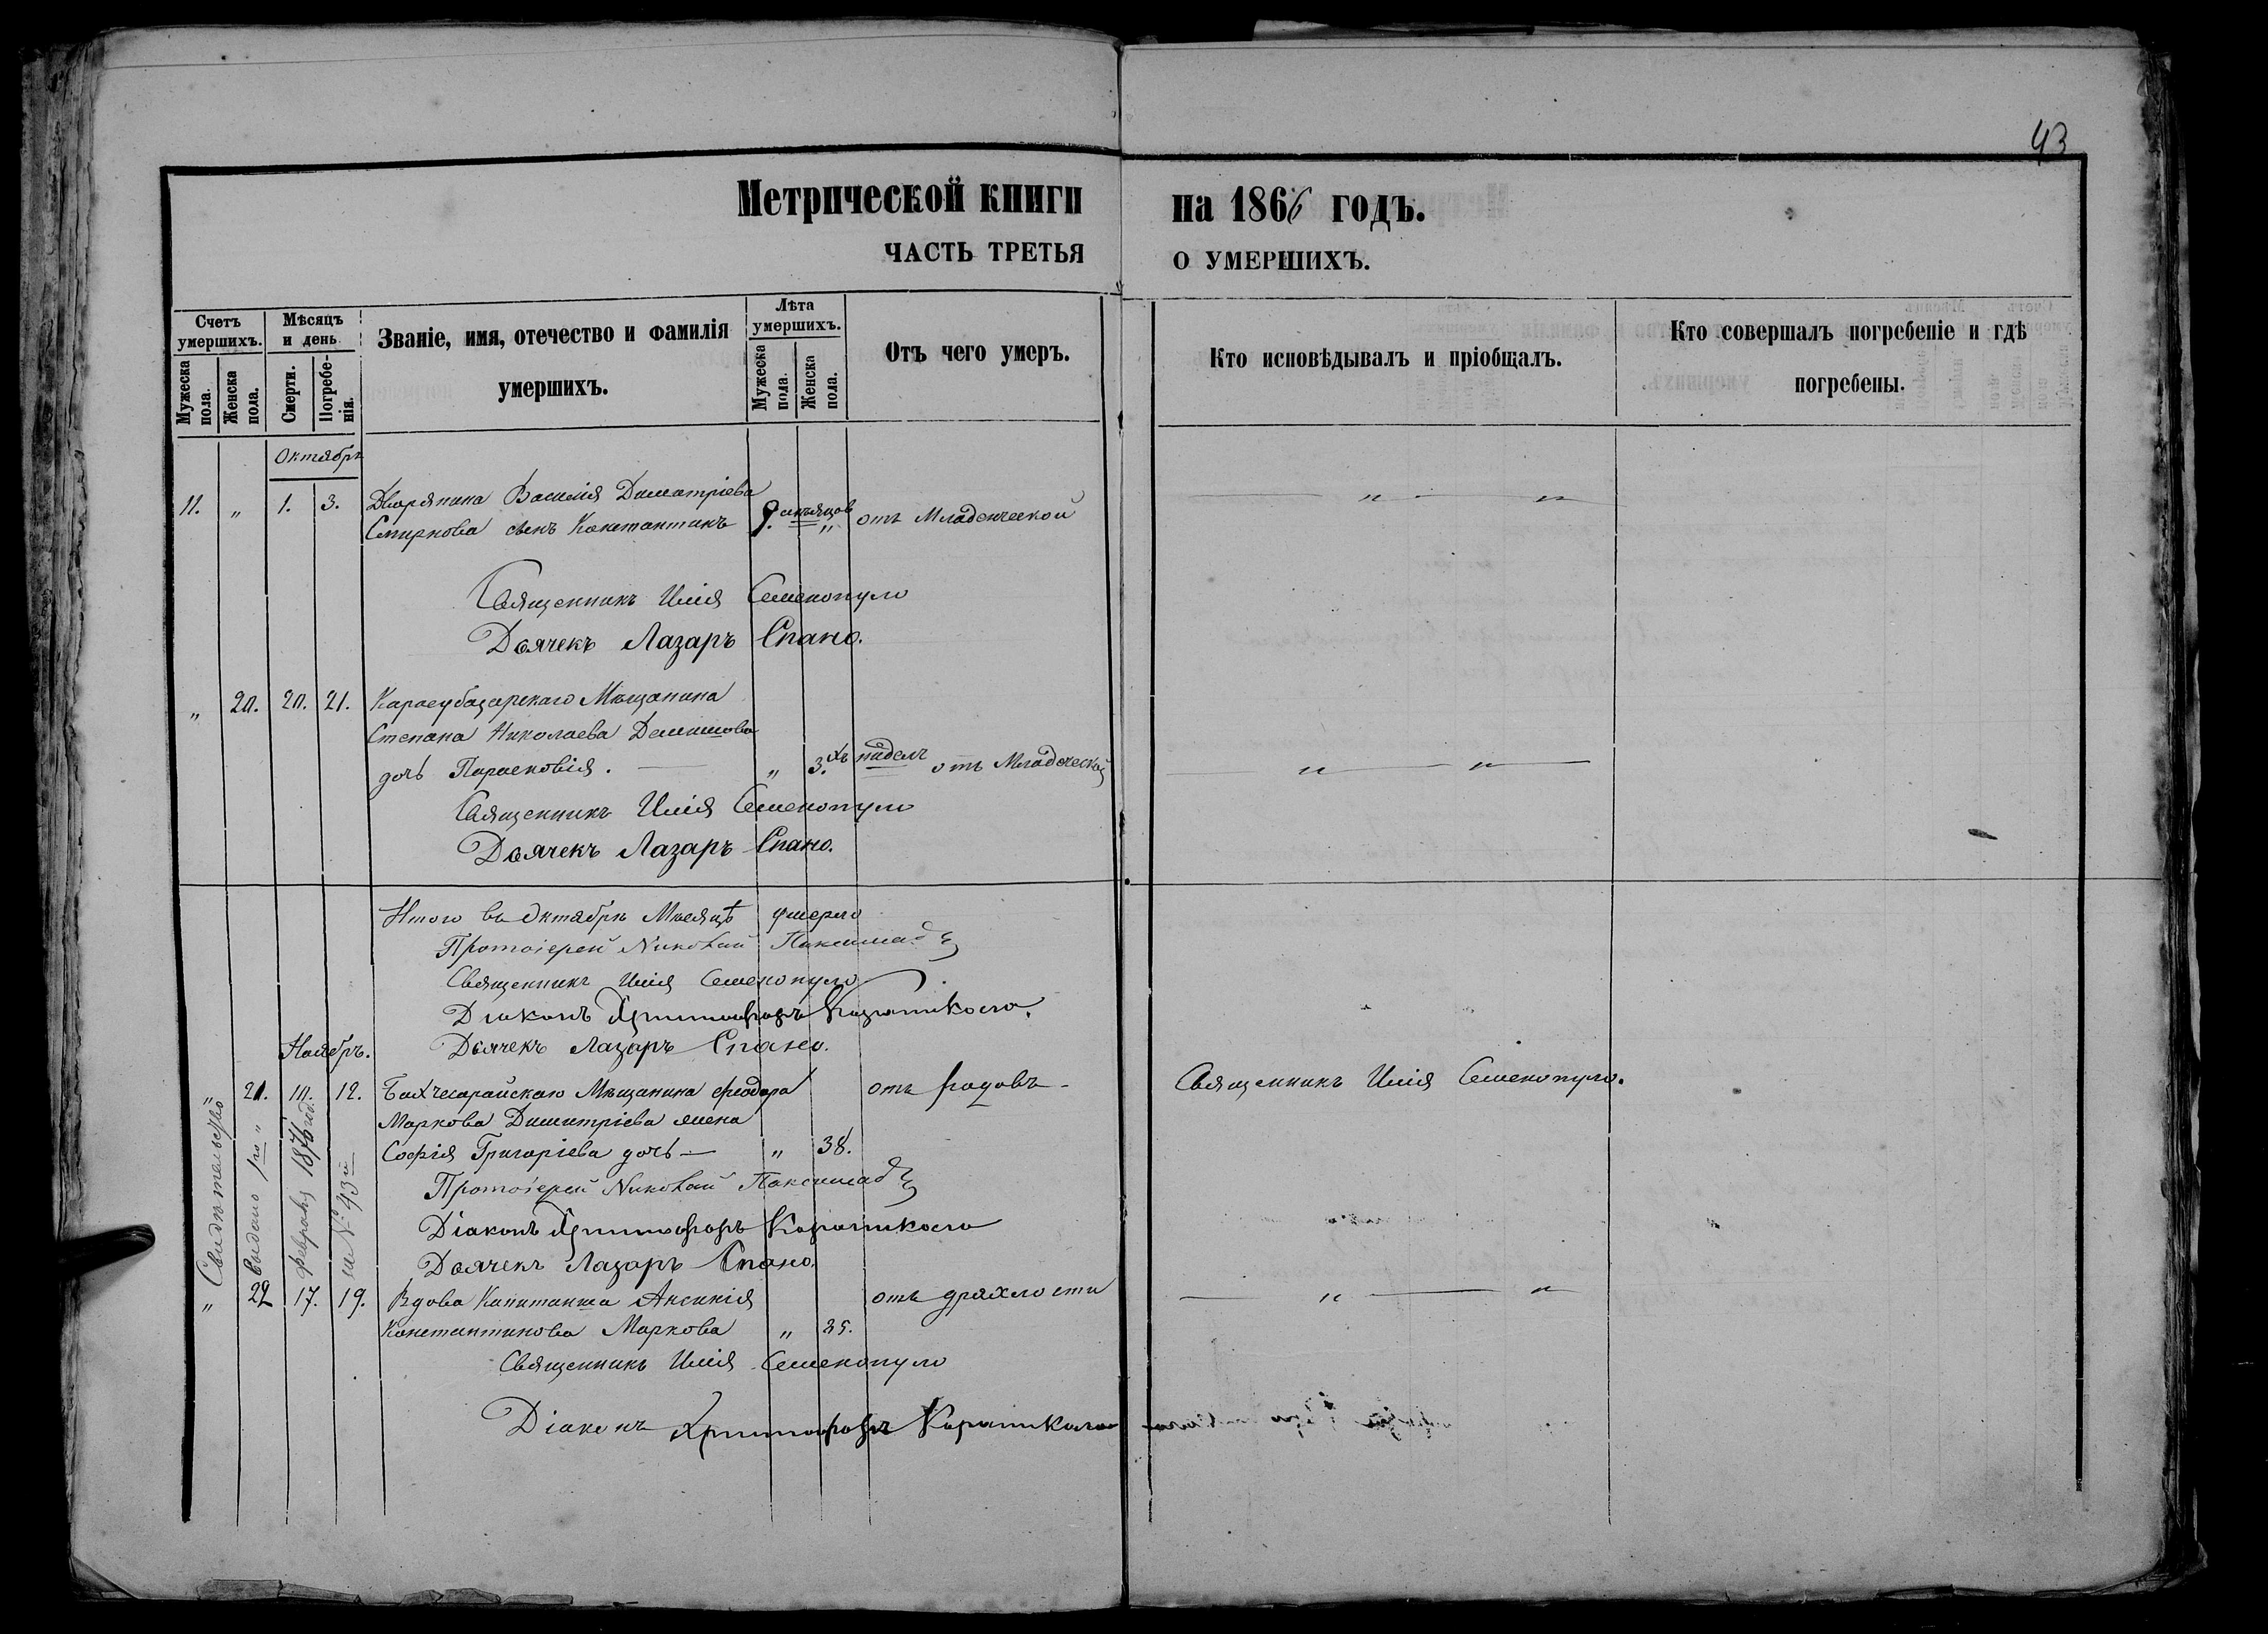 43
Метрической книги на 1866 годъ.
ЧАСТЬ ТРЕТЬЯ О УМЕРШИХЪ.
Счетъ умершихъ.
Мужеска пола.
Женска пола.
Мѣсяцъ и день
Смерти.
Погребенія.
Званіе, имя, отечество и фамилія умершихъ.
Лѣта умершихъ.
Мужеска пола.
Женска пола.
Отъ чего умеръ.
Кто исповѣдывалъ и пріобщалъ.
Кто совершалъ погребеніе и гдѣ погребены.
Октябрь
11. „ 1. 3. Дворянина Василія Димитріева
Смирнова сынъ Константинъ 9. мѣсяцов „ отъ Младенческой
Священникъ Илія Семенопуло
Дьячекъ Лазарь Спано.
„ 20. 20. 21. Карасубазарскаго Мѣщанина
Степана Николаева
дочь Парасковія. — „ 3.хъ недѣль отъ Младеческой
Священникъ Илія Семенопуло
Дьячекъ Лазарь Спано.
Итого въ Октябрѣ Мѣсяцѣ умерло
Протоіерей Николай
Священникъ Илія Семенопуло
Діаконъ Христофоръ
Дьячекъ Лазарь Спано.
Ноябрь.
„ 21. 10. 12. Бахчесарайскаго Мѣщанина Феодора отъ родовъ - Священникъ Илія Семенопуло.
Маркова Димитріева жена
Софія Григоріева дочь — „ 38.
Протоіерей Николай
Діаконъ Христофоръ
Дьячекъ Лазарь Спано.
Свидѣтельство
выдано 1го
февраля 1876 год.
за № 43й
„ 22 17. 19. Вдова Капитанша Аксинія отъ дряхлости
Константинова Маркова „ 85.
Священникъ Илія Семенопуло
Діаконъ Христофоръ